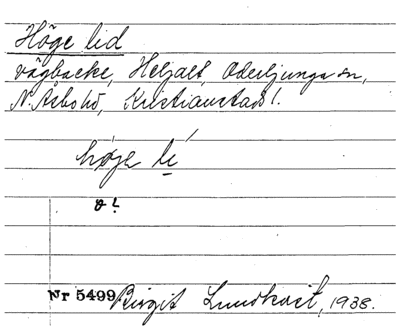 Höge lid
vägbacke, Hetsalt, Oderljunga sn,
N. Åsbo hd, Kristianstads l.
höje lé
Nr 5499 Birgit Lundkvist, 1938.